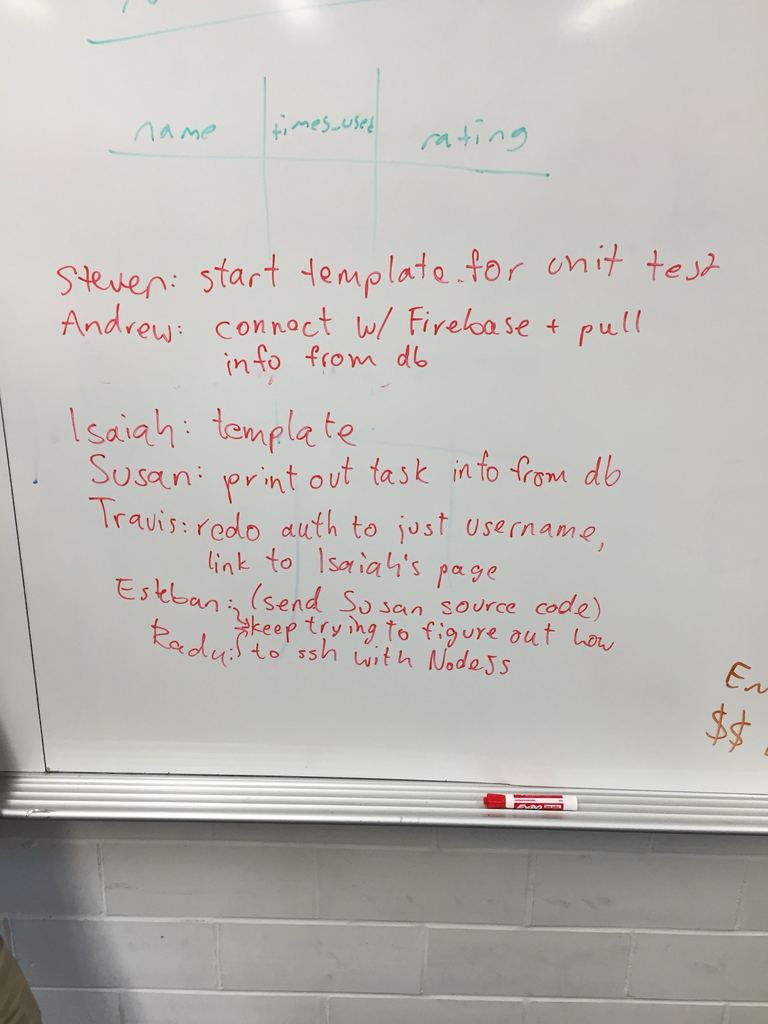 name times_used rating
Steven: start template for unit test
Andrew: connect w/ Firebase + pull
info from db
Isaiah: template
Susan: print out task info from db
Travis: redo auth to just username,
link to Isaiah's page
Esteban: (send Susan source code)
keep trying to figure out how
Radu: to ssh with NodeJS
$$
EXPO